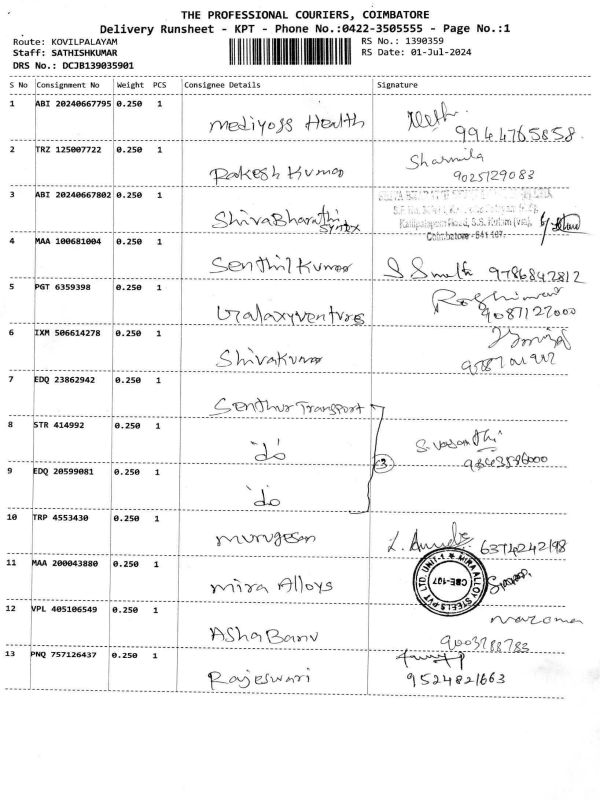 THE PROFESSIONAL COURIERS, COIMBATORE
Delivery Runsheet - KPT - Phone No.:0422-3505555 - Page No.:1
Route: KOVILPALAYAM RS No.: 1390359
Staff: SATHISHKUMAR RS Date: 01-Jul-2024
DRS No.: DCJB139035901
S No Consignment No Weight PCS Consignee Details Signature
1 ABI 20240667795 0.250 1
Mediyoss Health 9944765858
2 TRZ 125007722 0.250 1
Rakesh Kumar Sharmila 9025129083
3 ABI 20240667802 0.250 1
ShivaBharathi Syntex
Coimbatore - 641 107.
4 MAA 100681004 0.250 1
Senthil Kumar 9786842812
5 PGT 6359398 0.250 1
Galaxy ventures 9087127000
6 IXM 506614278 0.250 1
ShivaKumar
7 EDQ 23862942 0.250 1
Senthur Transport
8 STR 414992 0.250 1
"do"
3
9 EDQ 20599081 0.250 1
"do"
10 TRP 4553430 0.250 1
murugesan 6374242198
11 MAA 200043880 0.250 1
mira Alloys
MIRA ALLOY STEELS PVT LTD. UNIT-1
CBE-107
12 VPL 405106549 0.250 1
Asha Banu 9003788783
13 PNQ 757126437 0.250 1
Rajeswari 9524821663